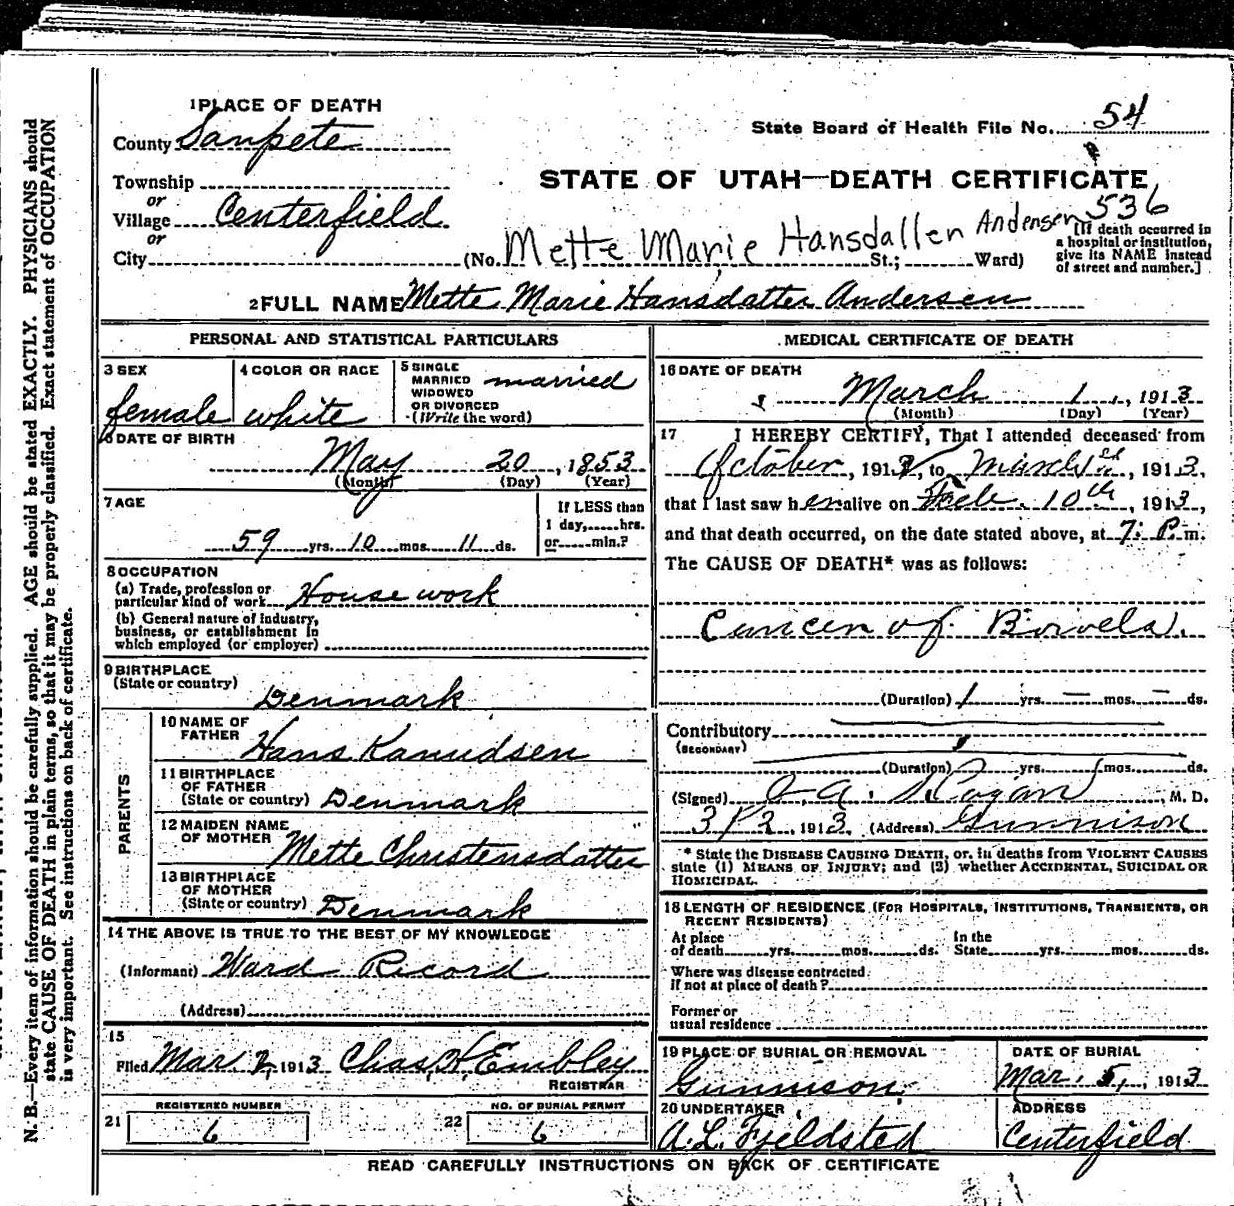 N. B.—Every item of information should be carefully supplied. AGE should be stated EXACTLY. PHYSICIANS should
state CAUSE OF DEATH in plain terms, so that it may be properly classified. Exact statement of OCCUPATION
is very important. See instructions on back of certificate.
1 PLACE OF DEATH
County Sanpete
State Board of Health File No. 54
Township
or
Village Centerfield
or
City
STATE OF UTAH—DEATH CERTIFICATE
536
Mette Marie Hansdallen Andensen
(No. St.; Ward)
[If death occurred in
a hospital or institution,
give its NAME instead
of street and number.]
2 FULL NAME Mette Marie Hansdatter Andersen
PERSONAL AND STATISTICAL PARTICULARS
3 SEX
female
4 COLOR OR RACE
white
5 SINGLE
MARRIED
WIDOWED
OR DIVORCED
(Write the word)
married
6 DATE OF BIRTH
May 20, 1853
(Month) (Day) (Year)
7 AGE
59 yrs. 10 mos. 11 ds.
If LESS than
1 day, hrs.
or min.?
8 OCCUPATION
(a) Trade, profession or
particular kind of work House work
(b) General nature of industry,
business, or establishment in
which employed (or employer)
9 BIRTHPLACE
(State or country)
Denmark
PARENTS
10 NAME OF
FATHER
Hans Kanudsen
11 BIRTHPLACE
OF FATHER
(State or country) Denmark
12 MAIDEN NAME
OF MOTHER
Mette Christensdatter
13 BIRTHPLACE
OF MOTHER
(State or country) Denmark
14 THE ABOVE IS TRUE TO THE BEST OF MY KNOWLEDGE
(Informant) Ward Record
(Address)
15
Filed Mar. 2, 1913 Chas. H. Embley
REGISTRAR
21 REGISTERED NUMBER
6
22 NO. OF BURIAL PERMIT
6
MEDICAL CERTIFICATE OF DEATH
16 DATE OF DEATH
March 1, 1913
(Month) (Day) (Year)
17 I HEREBY CERTIFY, That I attended deceased from
October, 191 , to March 1st, 1913,
that I last saw her alive on Feb. 10th, 1913,
and that death occurred, on the date stated above, at 7: P. m.
The CAUSE OF DEATH* was as follows:
Cancer of Bowels.
(Duration) 1 yrs. — mos. — ds.
Contributory
(SECONDARY)
(Duration) yrs. mos. ds.
(Signed) M. D.
3/2, 1913 (Address) Gunnison
* State the DISEASE CAUSING DEATH, or, in deaths from VIOLENT CAUSES
state (1) MEANS OF INJURY; and (2) whether ACCIDENTAL, SUICIDAL OR
HOMICIDAL.
18 LENGTH OF RESIDENCE (FOR HOSPITALS, INSTITUTIONS, TRANSIENTS, OR
RECENT RESIDENTS)
At place
of death yrs. mos. ds.
In the
State yrs. mos. ds.
Where was disease contracted
if not at place of death?
Former or
usual residence
19 PLACE OF BURIAL OR REMOVAL
Gunnison,
DATE OF BURIAL
Mar. 5, 1913
20 UNDERTAKER
A. L. Fjeldsted
ADDRESS
Centerfield
READ CAREFULLY INSTRUCTIONS ON BACK OF CERTIFICATE